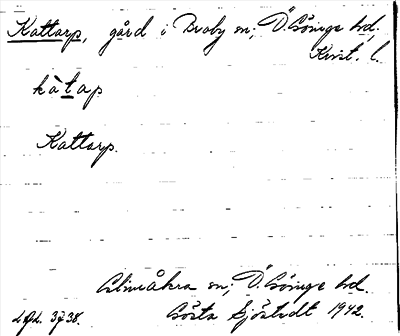 Kattarp, gård i Broby sn; Ö. Göinge hd,
Krist. l.
kàtap
Kattarp.
Glimåkra sn; Ö. Göinge hd.
Gösta Sjöstedt 1942.